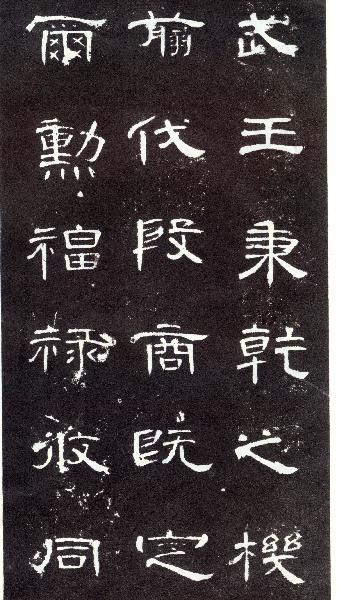 武王秉乾之机
翦伐殷商既定
爾勳福祿攸同